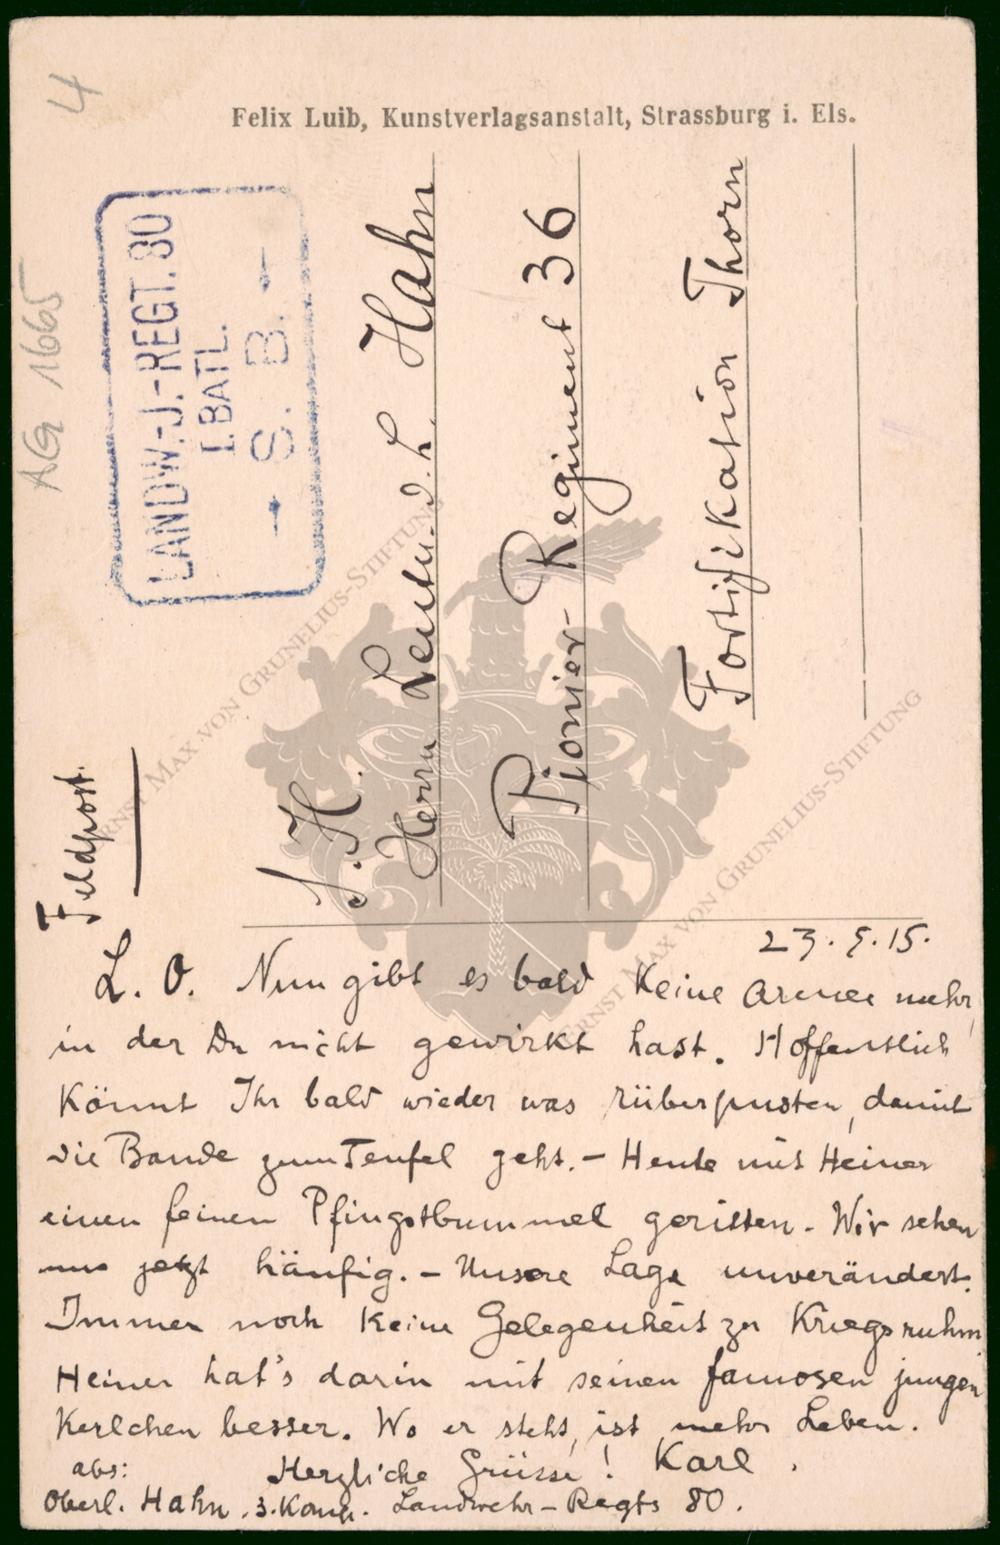 4
AG 1665
Felix Luib, Kunstverlagsanstalt, Strassburg i. Els.
LANDW.-J.-REGT. 80
I. BATL.
S. B.
Feldpost.
S. H.
Herrn Leutn. d. L. Hahn
Pionier-Regiment 36
Fortifikation Thorn
ERNST MAX VON GRUNELIUS-STIFTUNG
ERNST MAX VON GRUNELIUS-STIFTUNG
23.5.15.
L. O. Nun gibt es bald keine Armee mehr,
in der Du nicht gewirkt hast. Hoffentlich
könnt Ihr bald wieder was rüberpusten, damit
die Bande zum Teufel geht. – Heute mit Heiner
einen feinen Pfingstbummel geritten. Wir sehen
uns jetzt häufig. – Unsere Lage unverändert.
Immer noch keine Gelegenheit zu Kriegsruhm
Heiner hat's darin mit seinen famosen jungen
Kerlchen besser. Wo er steht, ist mehr Leben.
Herzliche Grüsse! Karl.
abs:
Oberl. Hahn. 3. Komp. Landwehr-Regts 80.